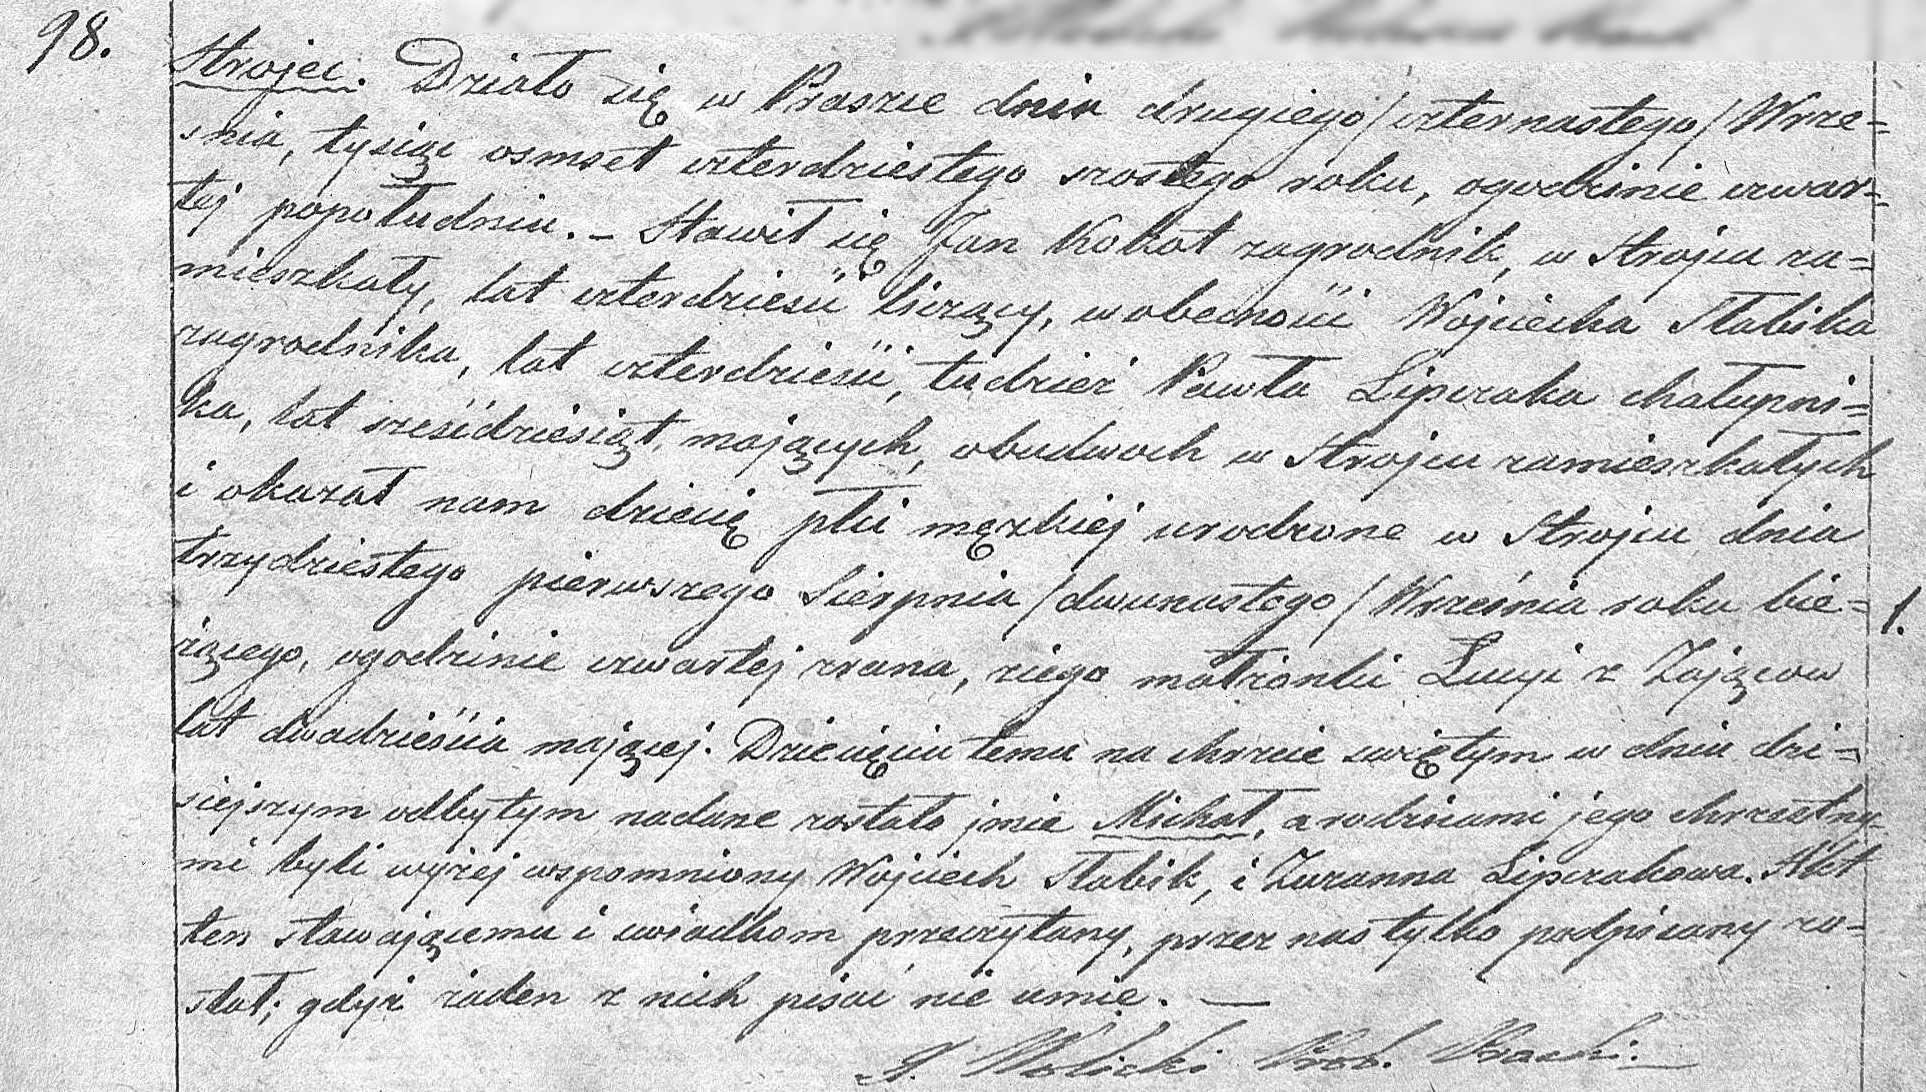 98.
Strojec. Działo się w Praszce dnia drugiego /czternastego/ Wrze=
śnia, tysiąc osmset czterdziestego szostego roku, ogodzinie czwar-
tej popołudniu. – Stawił się Jan Kokot zagrodnik, w Strojcu za=
mieszkały, lat czterdzieści liczący, wobecności Wojciecha Słabika
zagrodnika, lat czterdzieści, tudzież Pawła Lipczaka chałupni=
ka, lat sześćdziesiąt, mających, obudwoch w Strojcu zamieszkałych
i okazał nam dziecię płci męzkiej urodzone w Strojcu dnia
trzydziestego pierwszego Sierpnia /dwunastego/ Września roku bie= 1.
żącego, ogodzinie czwartej zrana, ziego małżonki Łucyi z Zająców
lat dwadzieścia mającej. Dziecięciu temu na chrzcie świętym w dniu dzi-
siejszym odbytym nadane zostało jmie Michał, a rodzicami jego chrzestny-
mi byli wyżej wspomniony Wojciech Słabik, i Zuzanna Lipczakowa. Akt
ten stawającemu i świadkom przeczytany, przez nas tylko podpisany zo-
stał; gdyż żaden z nich pisać nie umie. —
Wolicki Prob. Praszki.